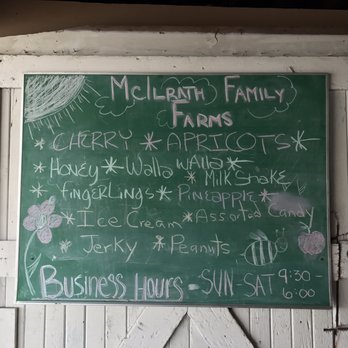 McIlrath Family
Farms
*CHERRY * APRICOTS*
*Honey * Walla Walla *
* Milk Shake
* Fingerlings * Pineapple *
*Ice Cream * Assorted Candy
* Jerky * Peanuts
Business Hours - SUN-SAT 9:30 -
6:00